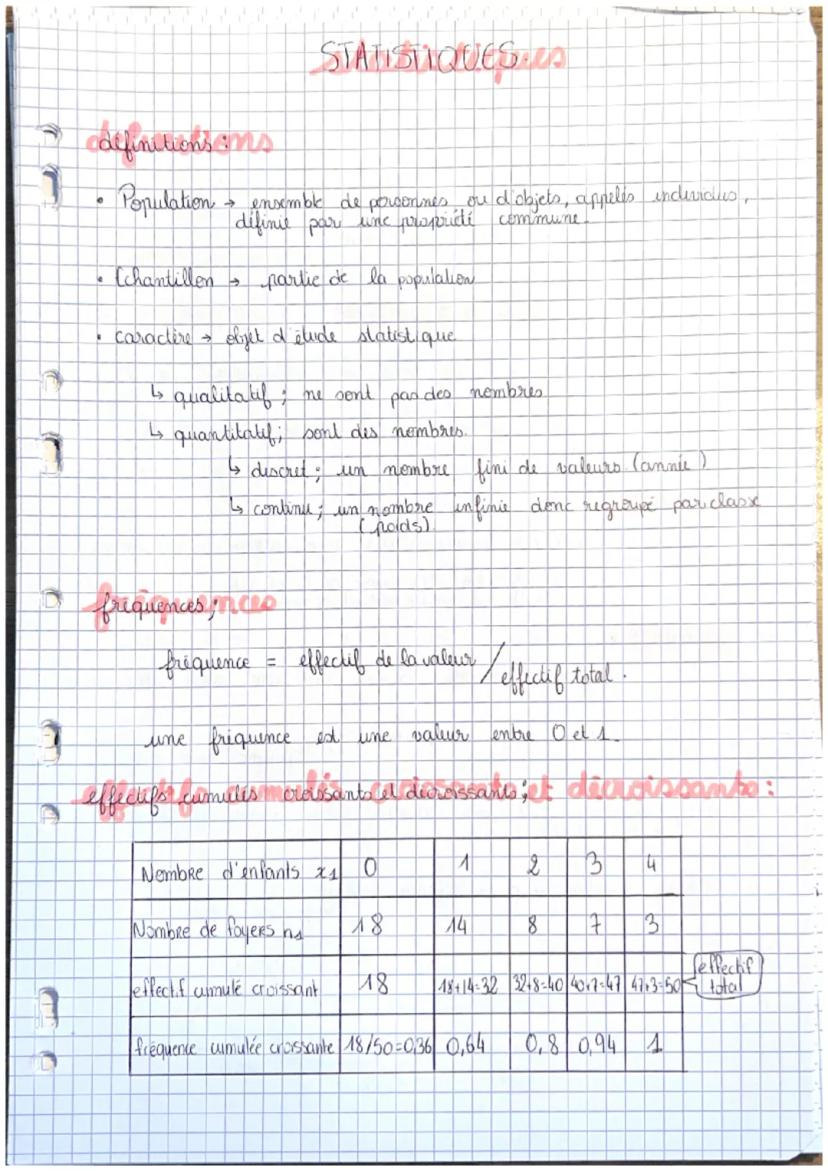 STATISTIQUES
définitions :
• Population → ensemble de personnes ou d'objets, appelés individus,
définie par une propriété commune.
• Echantillon → partie de la population
• caractère → objet d'étude statistique
↳ qualitatif ; ne sont pas des nombres
↳ quantitatif ; sont des nombres.
↳ discret ; un nombre fini de valeurs (année)
↳ continu ; un nombre infinie donc regroupé par classe
(poids)
fréquences ;
fréquence = effectif de la valeur / effectif total.
une fréquence est une valeur entre 0 et 1.
effectifs cumulés croissants et décroissants ;
Nombre d'enfants x1 0 1 2 3 4
Nombre de foyers n1 18 14 8 7 3
effectif cumulé croissant 18 18+14=32 32+8=40 40+7=47 47+3=50 effectif total
fréquence cumulée croissante 18/50=0,36 0,64 0,8 0,94 1